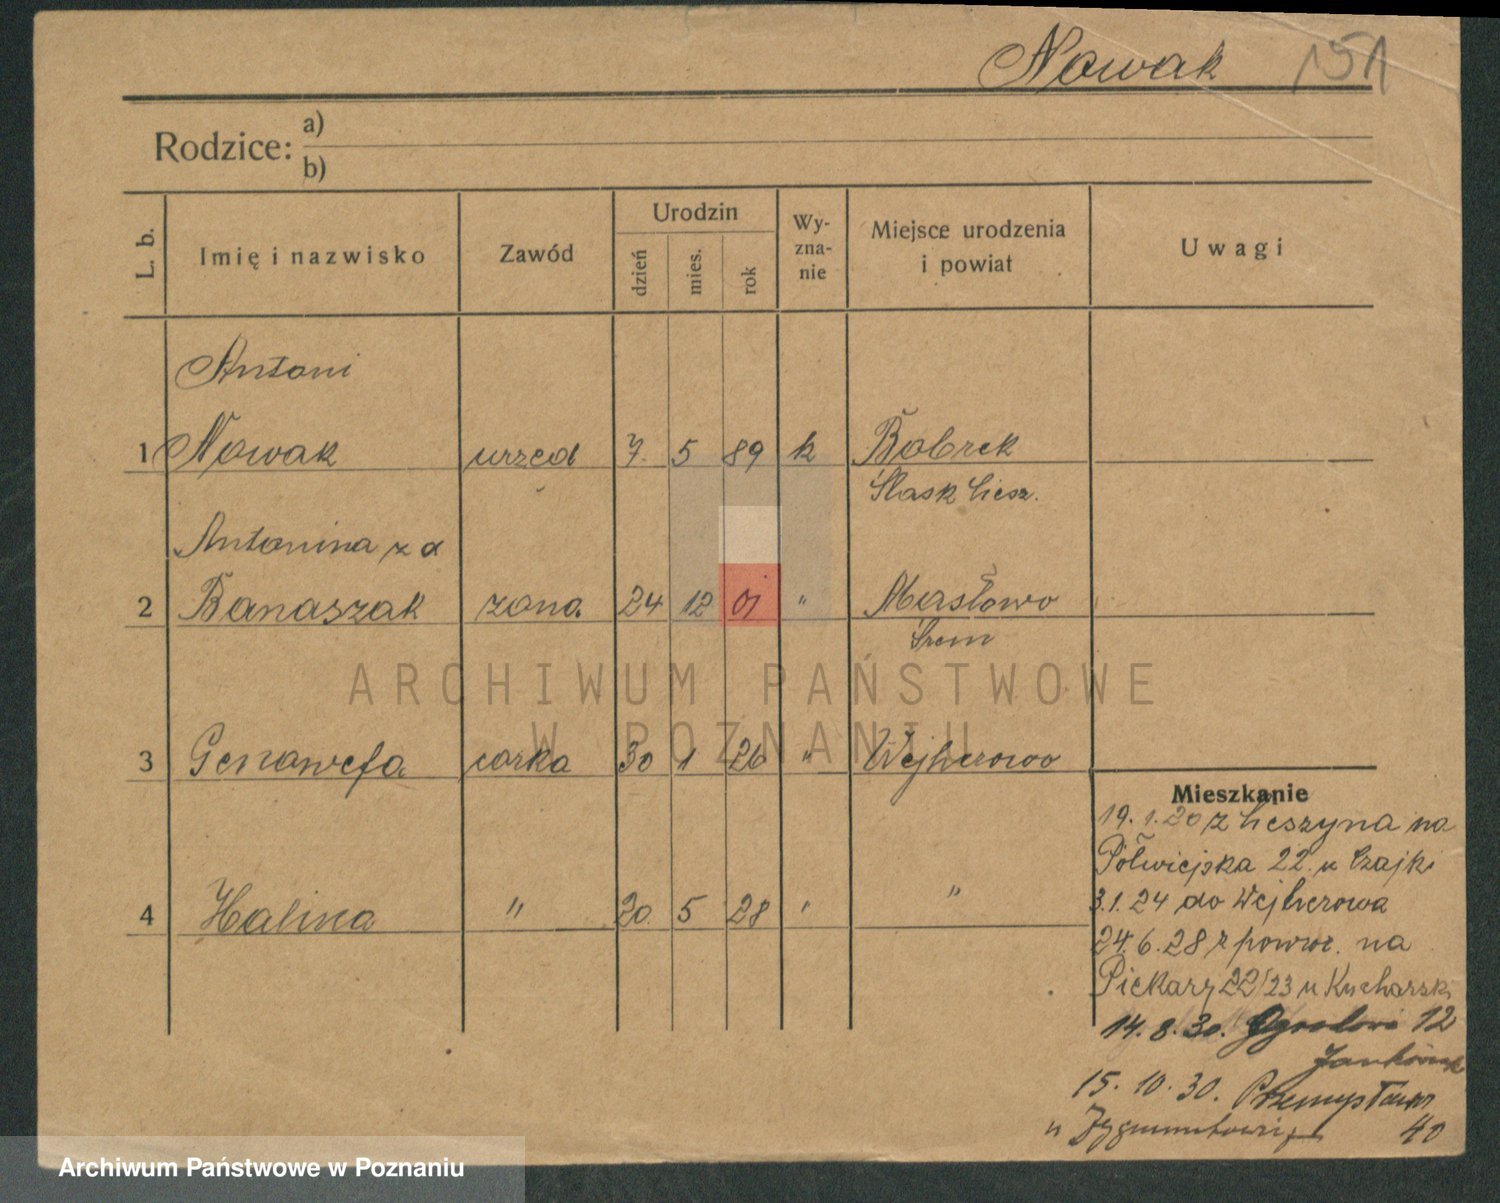 Nowak 151
Rodzice: a)
b)
L. b. Imię i nazwisko Zawód Urodzin dzień mies. rok Wy-zna-nie Miejsce urodzenia i powiat Uwagi
Antoni
1 Nowak urzed 7. 5 89 k Bobrek
Slask Ciesz.
Antonina z d
2 Banaszak zona 24 12 01 " Masłowo
Srem
ARCHIWUM PAŃSTWOWE
W POZNANIU
3 Genowefa corka 30 1 26 " Wejherowo
4 Halina " 20. 5 28 " "
Mieszkanie
19. 1. 20 z Cieszyna na
Półwiejska 22. u Czajki
3.1.24 do Wejherowa
24.6.28 z powrot. na
Piekary 22/23 u Kucharski
14. 8. 30. 12
15. 10. 30.
u 40
Archiwum Państwowe w Poznaniu